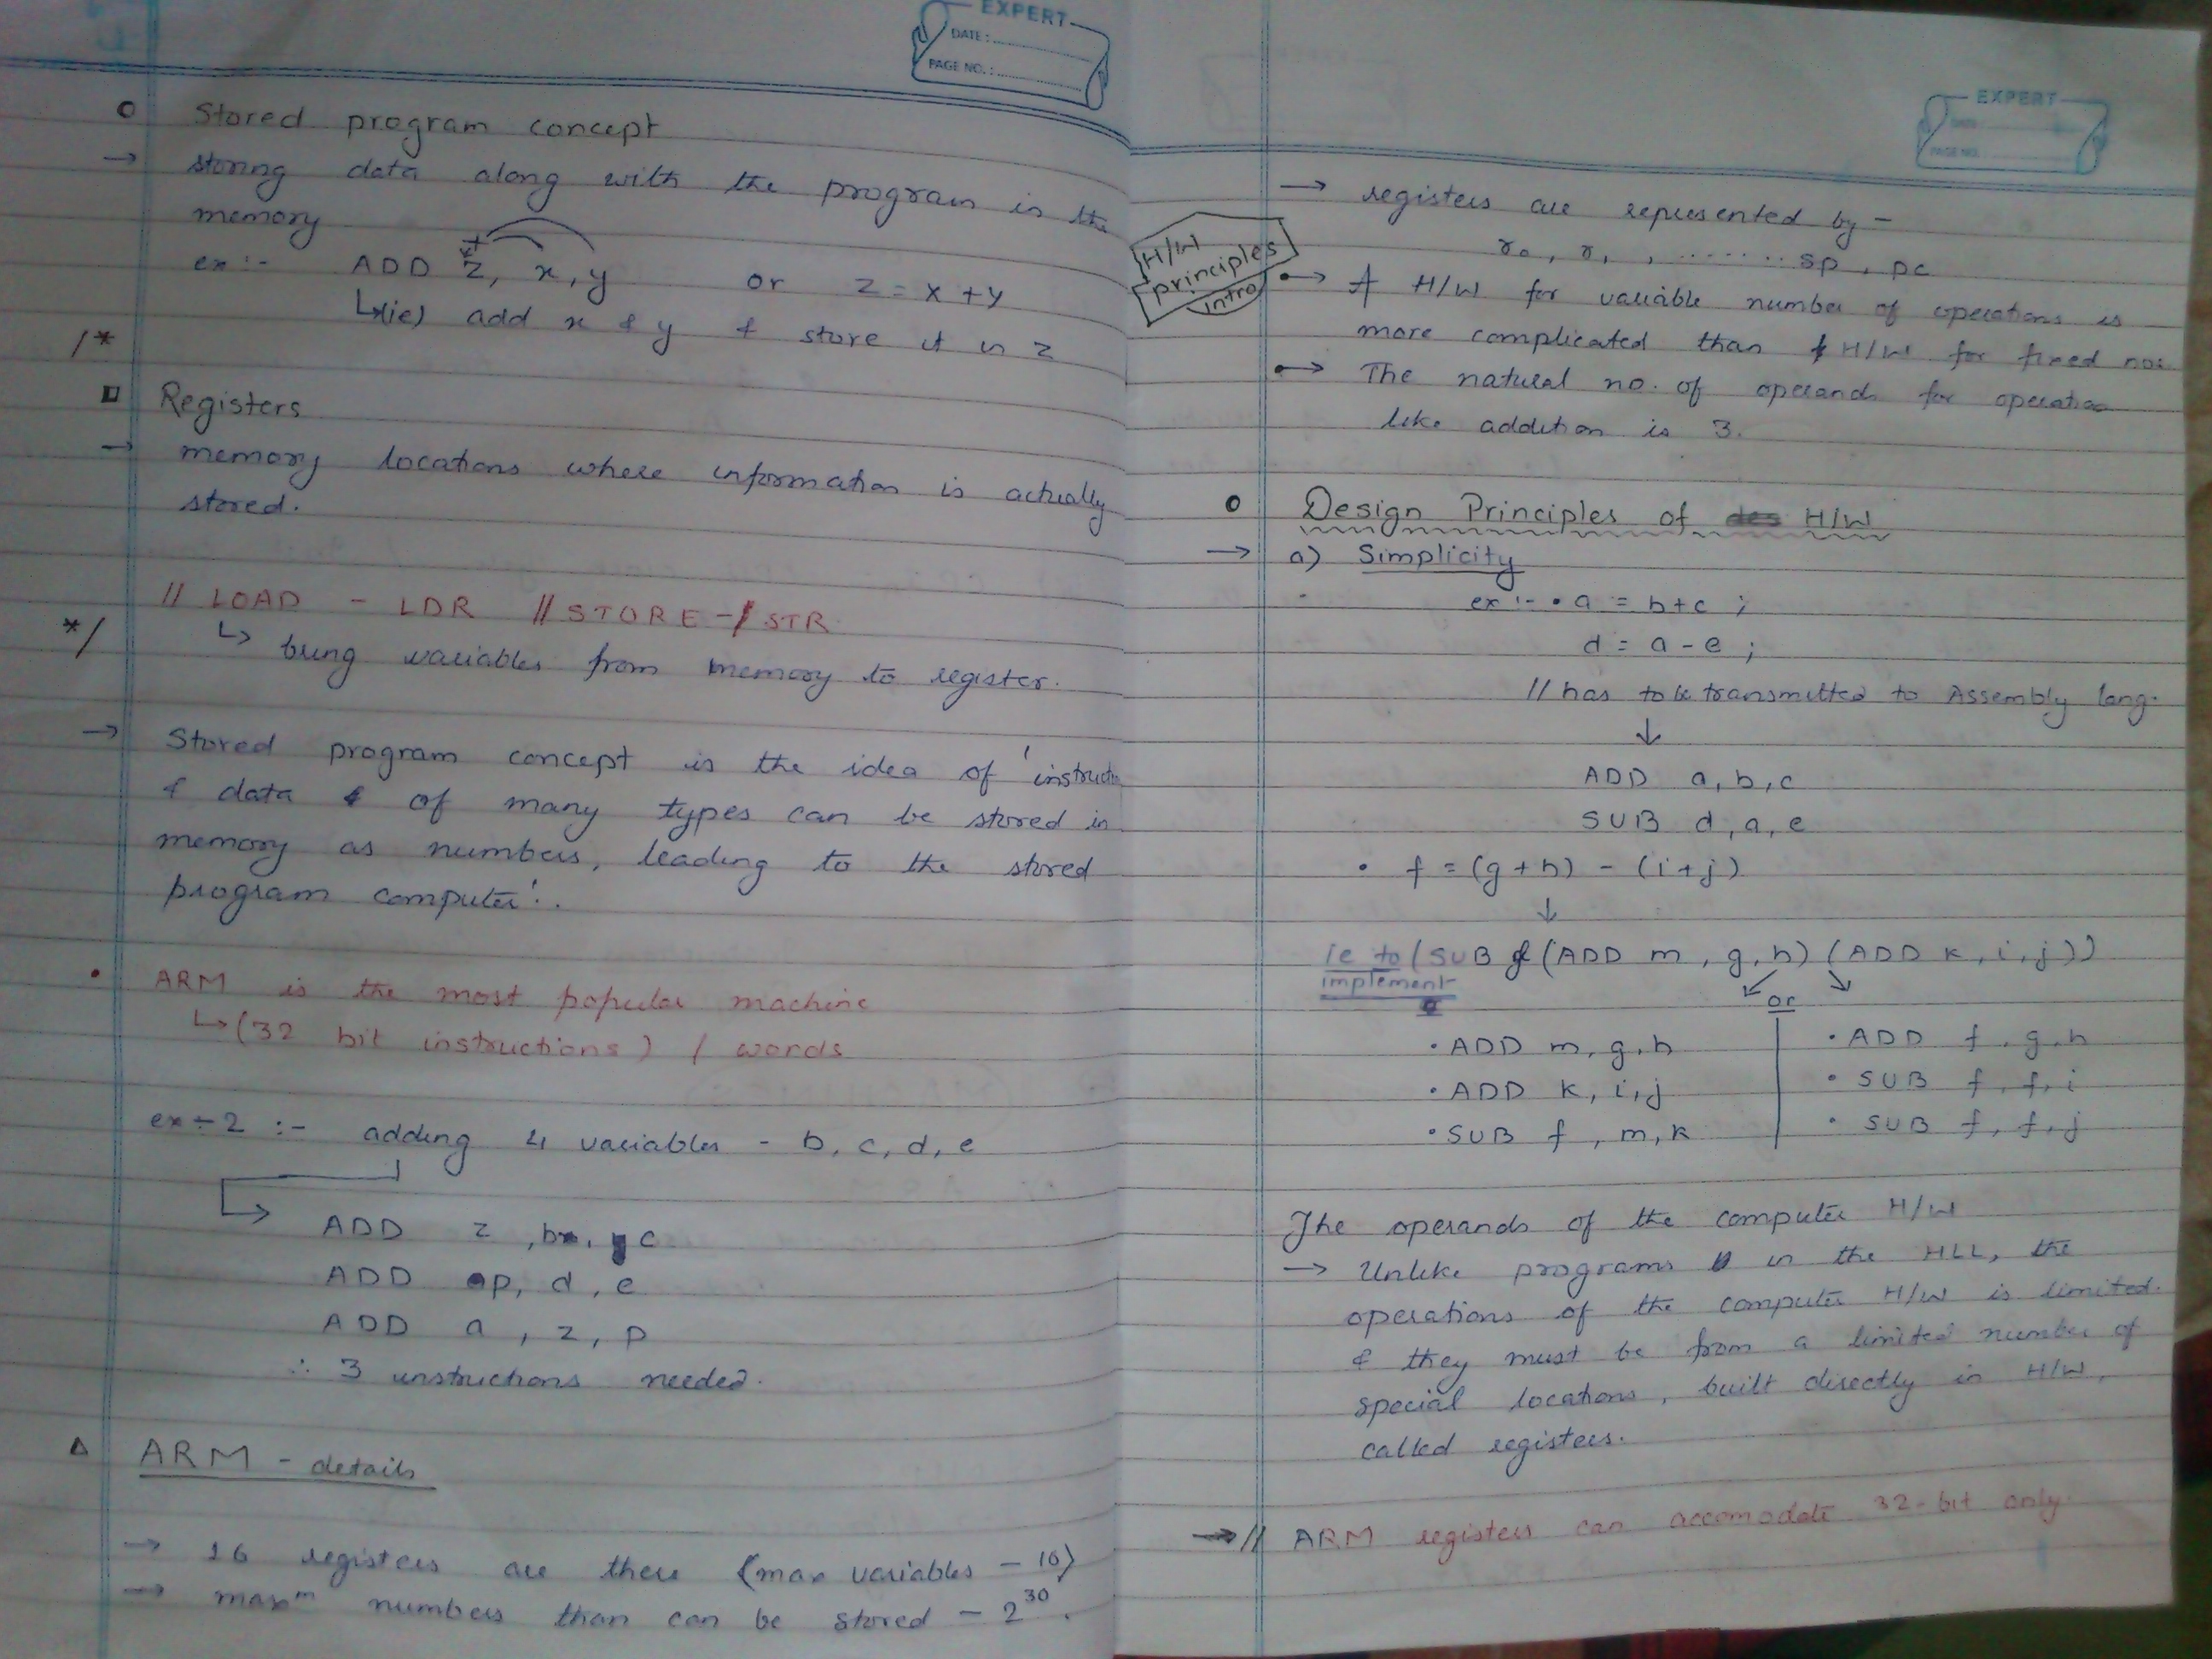 EXPERT
DATE :
PAGE NO. :
Stored program concept
→ storing data along with the program in the
memory
ex :- ADD z, x, y or z = x + y
↳(ie) add x & y & store it in z
/*
Registers
→ memory locations where information is actually
stored.
// LOAD - LDR // STORE - STR
*/
↳ bring variables from memory to register.
→ Stored program concept is the idea of 'instructn
& data of many types can be stored in
memory as numbers, leading to the stored
program computer'.
• ARM is the most popular machine
↳ (32 bit instructions) / words
ex-2 :- adding 4 variables - b, c, d, e
ADD z, b, c
ADD p, d, e
ADD a, z, p
∴ 3 instructions needed.
ARM - details
→ 16 registers are there (max variables - 16)
→ maxᵐ numbers than can be stored - 2³⁰.
EXPERT
DATE
PAGE NO.
→ registers are represented by -
r₀, r₁, ........ sp, pc
H/W
principles
intro
→ A H/W for variable number of operations is
more complicated than H/W for fixed nos.
→ The natural no. of operands for operation
like addition is 3.
Design Principles of H/W
→ a) Simplicity
ex :- • a = b + c ;
d = a - e ;
// has to be transmitted to Assembly lang.
↓
ADD a, b, c
SUB d, a, e
• f = (g + h) - (i + j)
↓
ie to (SUB f (ADD m, g, h) (ADD k, i, j))
implement
or
• ADD m, g, h
• ADD k, i, j
• SUB f, m, k
• ADD f, g, h
• SUB f, f, i
• SUB f, f, j
The operands of the computer H/W
→ Unlike programs in the HLL, the
operations of the computer H/W is limited.
& they must be from a limited number of
special locations, built directly in H/W,
called registers.
→ // ARM registers can accomodate 32-bit only